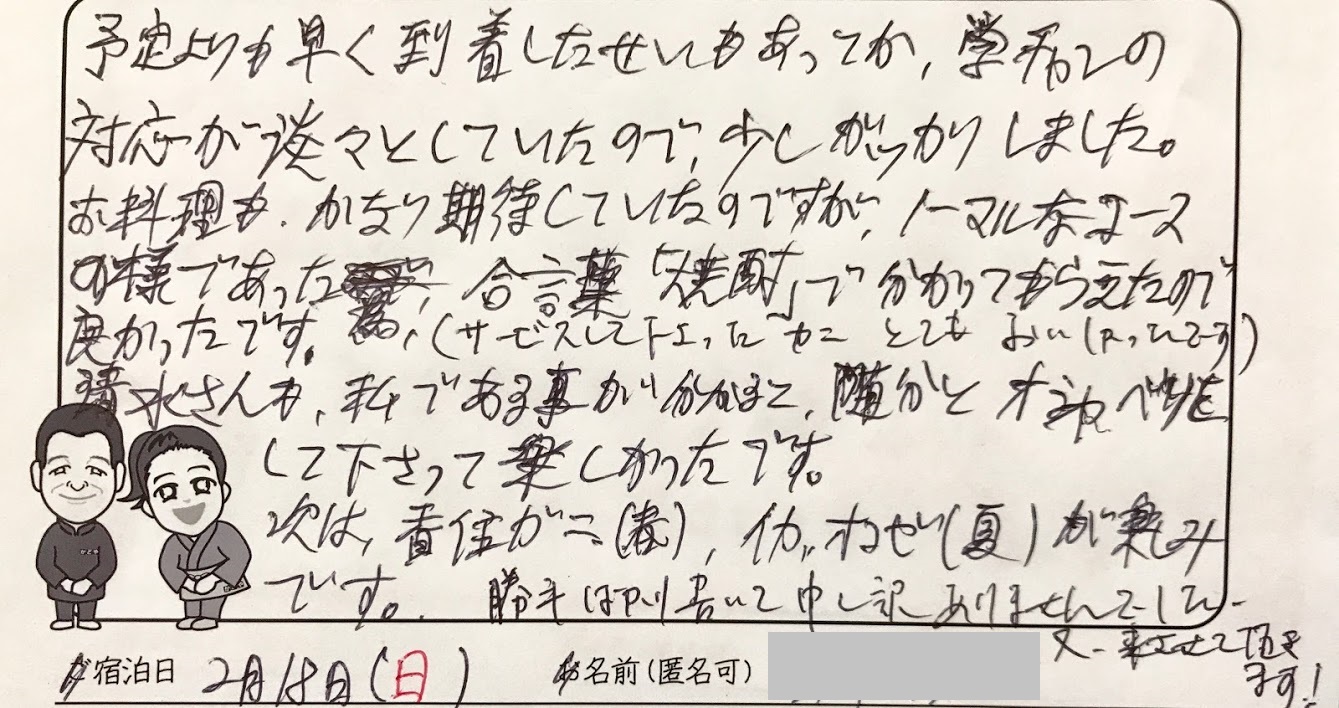 予定よりも早く到着したせいもあってか、学
対応が淡々としていたので、少しがっかりしました。
お料理も、かなり期待していたのですが、ノーマルなコース
の様であった 合言葉「焼酎」で分かってもらえたので
良かったです。（サービスして下さったカニとてもおいしかったです）
清水さんも、私である事が分かると、随分とオシャベリを
して下さって楽しかったです。
次は、香住ガニ（春）、イカ、（夏）が楽しみ
です。勝手ばかり書いて申し訳ありませんでした。
又、来させて頂き
ます！
お宿泊日 2月18日（日）
お名前（匿名可）